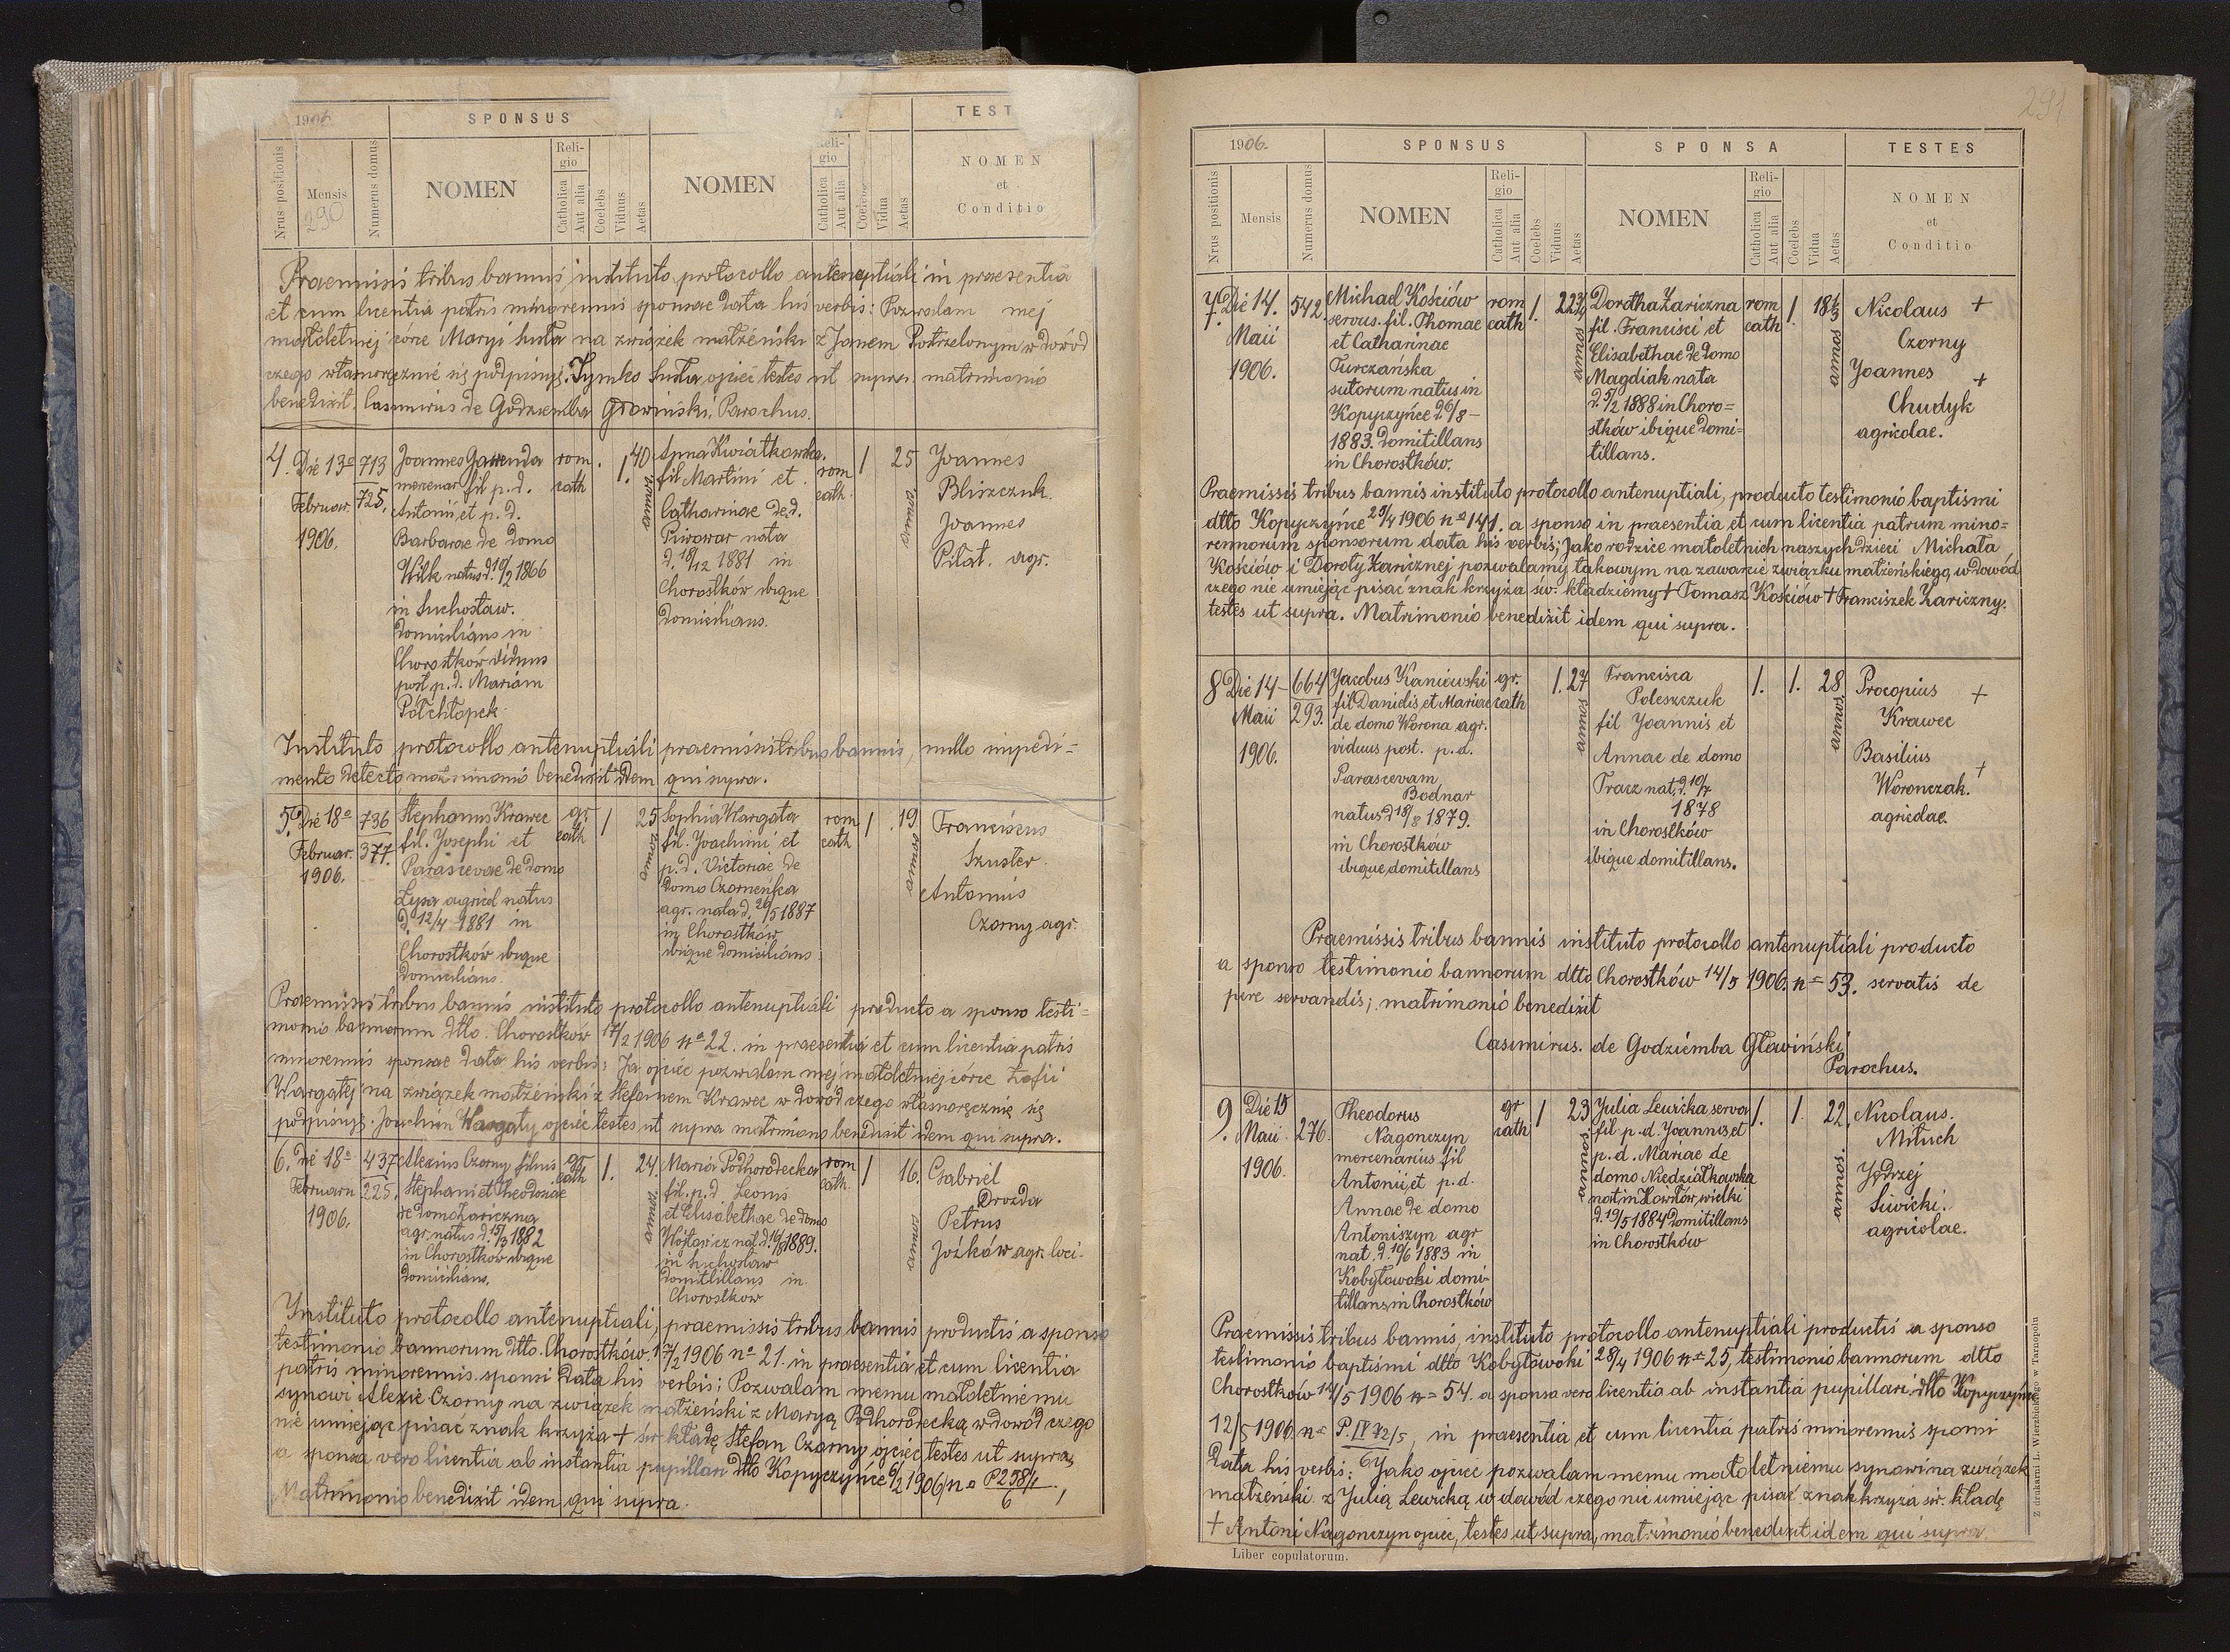 1906.
SPONSUS
A
TEST
Nrus positionis
Mensis
290
Numerus domus
NOMEN
Religio
Catholica
Aut alia
Coelebs
Viduus
Aetas
NOMEN
Catholica
Aut alia
Vidua
Aetas
NOMEN
et
Conditio
Praemissis tribus bannis instituto protocollo antenuptiali in praesentia
et cum licentia patris minorennis sponsae data his verbis: Pozwalam mej
małoletniej córce Maryi Susta na związek małżeński z Janem Postrzelonym w dowód
czego własnoręcznie się podpisuję. Tymko Susta ojciec testes ut supra. matrimonio
benedixit. Casimirus de Godziemba Głowiński, Parochus.
4. Die 13a
Februar.
1906.
713
725.
Joannes Gawenda
mercenar fil p. d.
Antonii et p. d.
Barbarae de domo
Wilk natus d. 10/2 1866
in Suchostaw.
domicilians in
Chorostków viduus
post p. d. Mariam
Półchłopek
rom
cath
1.
40
annos
Anna Kwiatkowska
fil Martini et
Catharinae de d.
Piwowar nata
d. 18/12 1881 in
Chorostków ibique
domicilians.
rom
cath.
1
25
annos
Joannes
Bliszczuk.
Joannes
Piłat. agr.
Instituto protocollo antenuptiali praemissis tribus bannis, nullo impedi-
mento detecto, matrimonio benedixit idem qui supra.
5. Die 18a
Februar.
1906.
736
377.
Stephanus Krawec
fil. Josephi et
Parascevae de domo
Lysa agricol natus
d. 12/4 1881 in
Chorostków ibique
domicilians.
gr.
cath
1
25
annos
Sophia Wargata
fil. Joachimi et
p. d. Victoriae de
domo Czorneńka
agr. nata d. 26/5 1887
in Chorostków
ibique domicilians
rom
cath
1
19
annos
Franciscus
Szuster.
Antonius
Czorny agr.
Praemissis tribus bannis instituto protocollo antenuptiali producto a sponso testi-
monio bannorum dtto. Chorostków 17/2 1906 no 22. in praesentia et cum licentia patris
minorennis sponsae data his verbis: Ja ojciec pozwalam mej małoletniej córce Zofii
Wargatej na związek małżeński z Stefanem Krawec w dowód czego własnoręcznie się
podpisuję. Joachim Wargaty ojciec testes ut supra matrimonio benedixit idem qui supra.
6. Die 18a
Februarii
1906.
437
225.
Alexius Czorny filius
Stephani et Theodosiae
de domo Zariczna
agr. natus d. 15/3 1882
in Chorostków ibique
domicilians.
gr.
cath
1.
24.
annos
Maria Podhorodecka
fil. p. d. Leonis
et Elisabethae de domo
Wojtowicz nat. d. 16/8 1889.
in Suchostaw
domitillans in
Chorostkow
rom
cath.
1
16.
annos
Gabriel
Drozda
Petrus
Jóźków agr. loci.
Instituto protocollo antenuptiali, praemissis tribus bannis productis a sponso
testimonio bannorum dtto. Chorostków. 17/2 1906 no 21. in praesentia et cum licentia
patris minorennis. sponsi data his verbis; Pozwalam memu małoletniemu
synowi Alexie Czorny na związek małżeński z Maryą Podhorodecką w dowód czego
nie umiejąc pisać znak krzyża + św kładę Stefan Czorny ojciec testes ut supra,
a sponsa vero licentia ab instantia pupillari dtto Kopyczyńce 6/2 1906 no P 258/1
6
Matrimonio benedixit idem qui supra.
291
1906.
SPONSUS
SPONSA
TESTES
Nrus positionis
Mensis
Numerus domus
NOMEN
Religio
Catholica
Aut alia
Coelebs
Viduus
Aetas
NOMEN
Religio
Catholica
Aut alia
Coelebs
Vidua
Aetas
NOMEN
et
Conditio
7. Die 14.
Maii
1906.
542.
Michael Kościów
servus. fil. Thomae
et Catharinae
Turczańska
sutorum natus in
Kopyczyńce d. 6/8 -
1883. domitillans
in Chorostków.
rom
cath
1.
22 3/4
annos
Dorotha Zariczna
fil. Francisci et
Elisabethae de domo
Magdiak nata
d. 5/2 1888 in Choro=
stków ibique domi=
tillans.
rom
cath
1.
18 1/3
annos
Nicolaus +
Czorny
Joannes +
Chudyk
agricolae.
Praemissis tribus bannis instituto protocollo antenuptiali, producto testimonio baptismi
dtto Kopyczyńce 29/4 1906 no 141. a sponso in praesentia et cum licentia patrum mino=
rennorum sponsorum data his verbis; Jako rodzice małoletnich naszych dzieci Michała
Kościów i Doroty Zaricznej pozwalamy takowym na zawarcie związku małżeńskiego, w dowód
czego nie umiejąc pisać znak krzyża św. kładziemy + Tomasz Kościów + Franciszek Zariczny.
testes ut supra. Matrimonio benedixit idem qui supra.
8 Die 14-
Maii
1906.
664
293.
Jacobus Kaniewski
fil Danielis et Mariae
de domo Worona agr.
viduus post. p. d.
Parascevam
Bodnar
natus d 18/8 1879.
in Chorostków
ibique domitillans
gr.
cath
1.
27
annos
Francisca
Poleszczuk
fil Joannis et
Annae de domo
Tracz nat. d. 10/7
1878
in Chorostków
ibique domitillans.
1.
1.
28
annos
Procopius +
Krawec
Basilius +
Woronczak.
agricolae.
Praemissis tribus bannis instituto protocollo antenuptiali producto
a sponso testimonio bannorum dtto Chorostków 14/5 1906. no 53. servatis de
jure servandis; matrimonio benedixit
Casimirus. de Godziemba Głowiński
Parochus.
9. Die 15
Maii
1906.
276.
Theodorus
Nagonczyn
mercenarius fil
Antonii et p. d.
Annae de domo
Antoniszyn agr
nat. d. 10/6 1883 in
Kobyłowoki domi-
tillans in Chorostków
gr
cath
1
23
annos
Julia Lewicka serva
fil p. d. Joannis et
p. d. Mariae de
domo Niedziałkowska
nat in Howiłów wielki
d. 19/5 1884 domitillans
in Chorostków
1.
1.
22.
annos.
Nicolaus.
Mituch
Jędrzej
Siwicki.
agricolae.
Praemissis tribus bannis, instituto protocollo antenuptiali productis a sponso
testimonio baptismi dtto Kobyłowoki 28/4 1906 no 25, testimonio bannorum dtto
Chorostków 14/5 1906 no 54. a sponsa vero licentia ab instantia pupillari. dtto Kopyczyńce
12/5 1906. no P. IV 72/5, in praesentia et cum licentia patris minorennis sponsi
6
data his verbis: Jako ojciec pozwalam memu małoletniemu synowi na związek
małżenski z Julią Lewicką w dowód czego nie umiejąc pisać znak krzyża św. kładę
+ Antoni Nagonczyn ojciec, testes ut supra, matrimonio benedixit idem qui supra.
Liber copulatorum.
Z drukarni L. Wierzbickiego w Tarnopolu